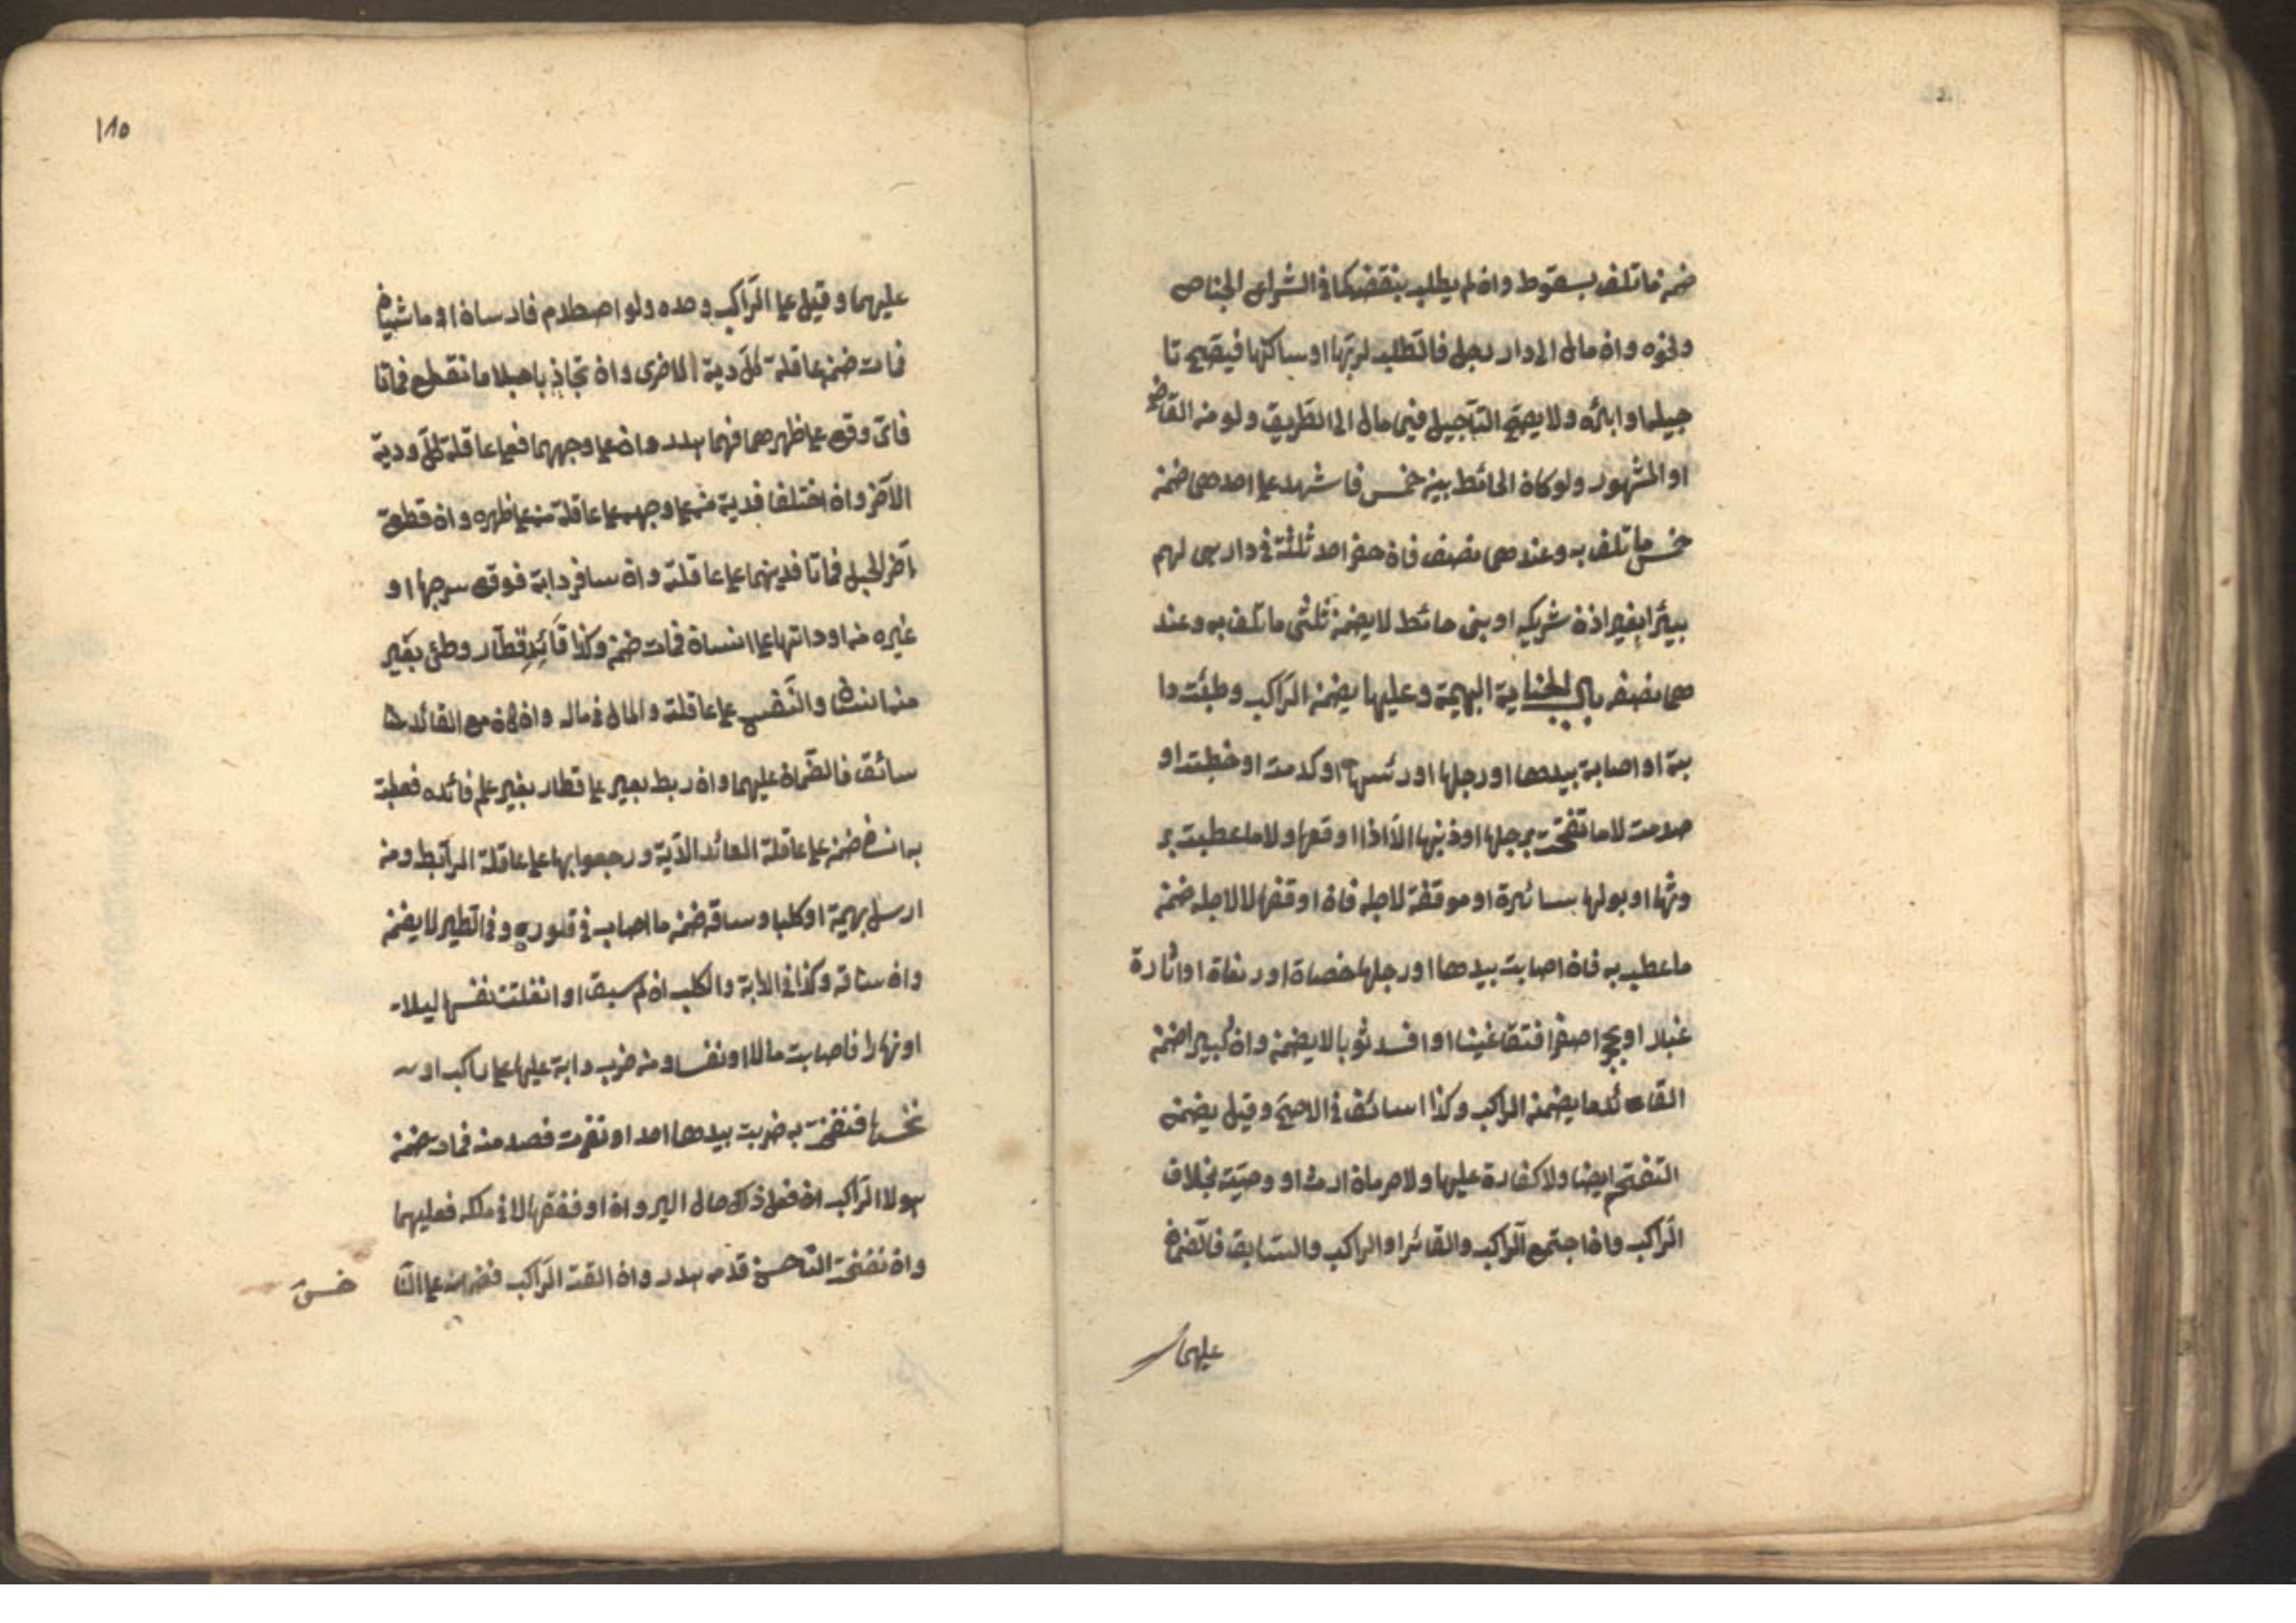 ضمن ما تلف بسقوط وان لم يطلب بنقضه كما في الشراع الجناح
ونحوه وان مال الى دار رجل فالطلب لربها او ساكنها فيصح تا
جيلها وابرائه ولا يصح التأجيل فيمن مال الى الطريق ولو من القاضي
او المشهور ولو كان الحائط بين خمس فاشهد على احدهم ضمن
خمس ما تلف به وعندهمى نصف فان حفر احد ثلثة في دار هى لهم
بيئرا بغير اذن شريكه او بنى حائط لا يضمن ثلثى ما تلف به وعند
همى نصفه باب الجناية البهيمة وعليها يضمن الراكب وطئت دا
بته او اصابة بيدها او رجلها او رئسها او كدمت او خبطت او
صدمت لا ما نفخت برجلها او ذنبها الا اذا اوقعها ولا ما عطبت بر
وثها او بولها سائرة او موقفة لاجله فان اوقفها لا لاجله ضمن
ما عطب به فان اصابت بيدها او رجلها حصاة او نواة او اثارة
غبار او حجرا صغرا فتقا عينا او افسد ثوبا لا يضمن وان كبيرا ضمن
القائد ما يضمن الراكب وكذا اسائق في الاصح وقيل يضمن
النفخة ايضا ولا كفارة عليها ولا حرمان ارث او وصيت بخلاف
الراكب واذا اجتمع الراكب والقائد او الراكب والسايق فالضمان
عليهما
١٨٥
عليهما وقيل على الراكب وحده ولو اصطلام فارسان او ماشيان
فمات ضمن عاقلة كل دية الاخرى وان تجاذبا حبلا فانقطع فماتا
فان وقع على ظهرهما فهما هدر وان على وجههما فعلى عاقلة كل ودية
الآخر وان اختلفا فدية من على وجهه على عاقلة من على ظهره وان قطع
آخر الحبل فماتا فديتهما على عاقلته وان ساق دابة فوقع سرجها او
غيره من اوداتها على انسان فمات ضمن وكذا قائد قطار وطئ بعير
منه انسانا والنفس على عاقلته والمال في ماله وان كان مع القائد
سائق فالضمان عليهما وان ربط بعير على قطار بغير علم قائده فعطب
به انسان ضمن على عاقلة القائد الدية ورجعوا بها على عاقلة الرابط ومن
ارسل بهيمة او كلبا وساقه ضمن ما اصاب في فوره وفى الطير لا يضمن
وان ساقه وكذا في الدابة والكلب ان لم سيق او انفلتت نفسها ليلا
او نهارا فاصابت مالا او نفسا ومن ضرب دابة عليها على راكب او
نخسها فنفخت به ضربت بيدها احد او نفرت فصدمته فمات ضمن
هو لا الراكب ان فعل ذلك حال السير وان اوقفها لا في ملكه فعليهما
وان نفخت الناخس قدمه هدر وان القت الراكب فضمانه على النا
خس